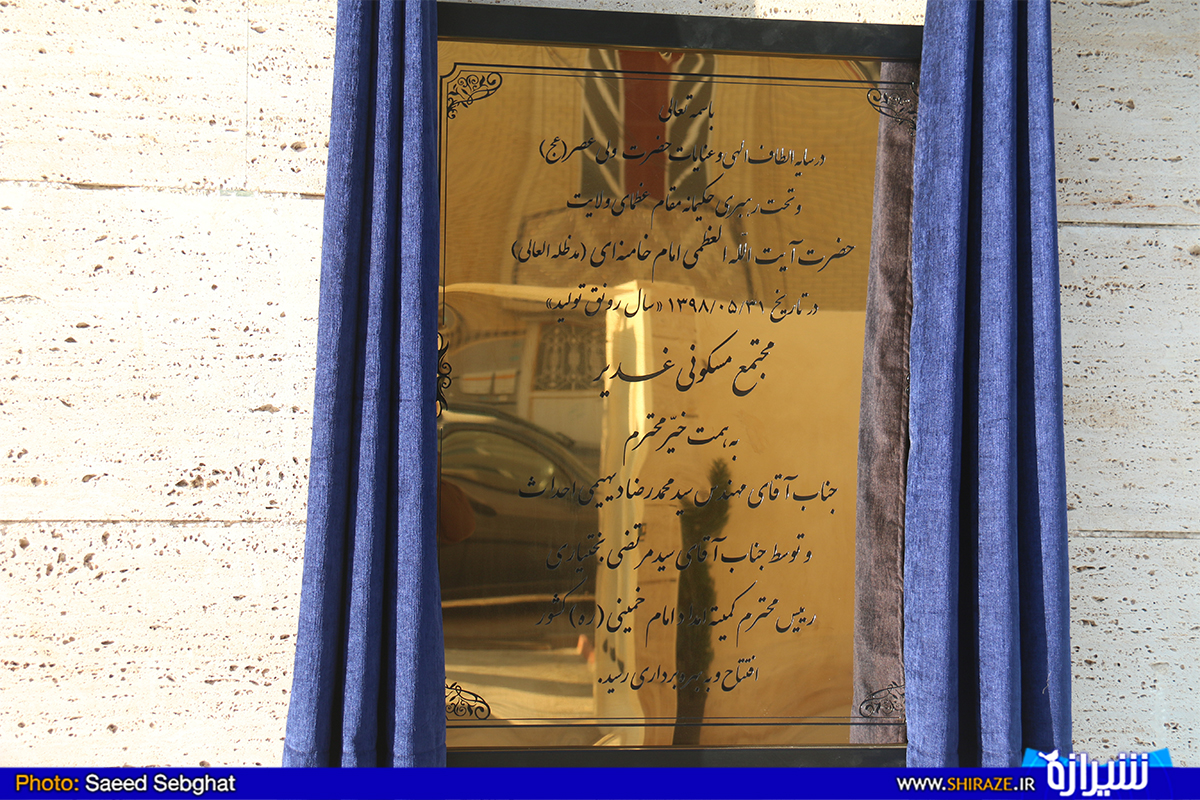 باسمه تعالی
در سایه الطاف الهی و عنایات حضرت ولی عصر (عج)
و تحت رهبری حکیمانه مقام عظمای ولایت
حضرت آیت الله العظمی امام خامنه‌ای (مدظله العالی)
در تاریخ ۱۳۹۸/۰۵/۳۱ «سال رونق تولید»
مجتمع مسکونی غدیر
به همت خیّر محترم
جناب آقای مهندس سید محمدرضا دیهیمی احداث
و توسط جناب آقای سید مرتضی بختیاری
رییس محترم کمیته امداد امام خمینی (ره) کشور
افتتاح و به بهره برداری رسید.
Photo: Saeed Sebghat
WWW.SHIRAZE.IR شیرازه